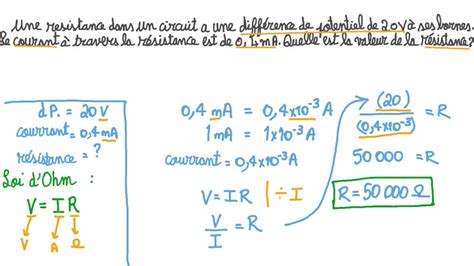 Une resistance dans un circuit a une différence de potentiel de 20V à ses bornes.
Le courant à travers la résistance est de 0,4mA. Quelle est la valeur de la résistance?
d.P. = 20 V
courrant = 0,4 mA
résistance = ?
Loi d'Ohm :
V = I R
V A Ω
0,4 mA = 0,4×10⁻³ A
1 mA = 1×10⁻³ A
courrant = 0,4×10⁻³ A
V = I R | ÷ I
V/I = R
(20)/(0,4×10⁻³) = R
50 000 = R
R = 50 000 Ω